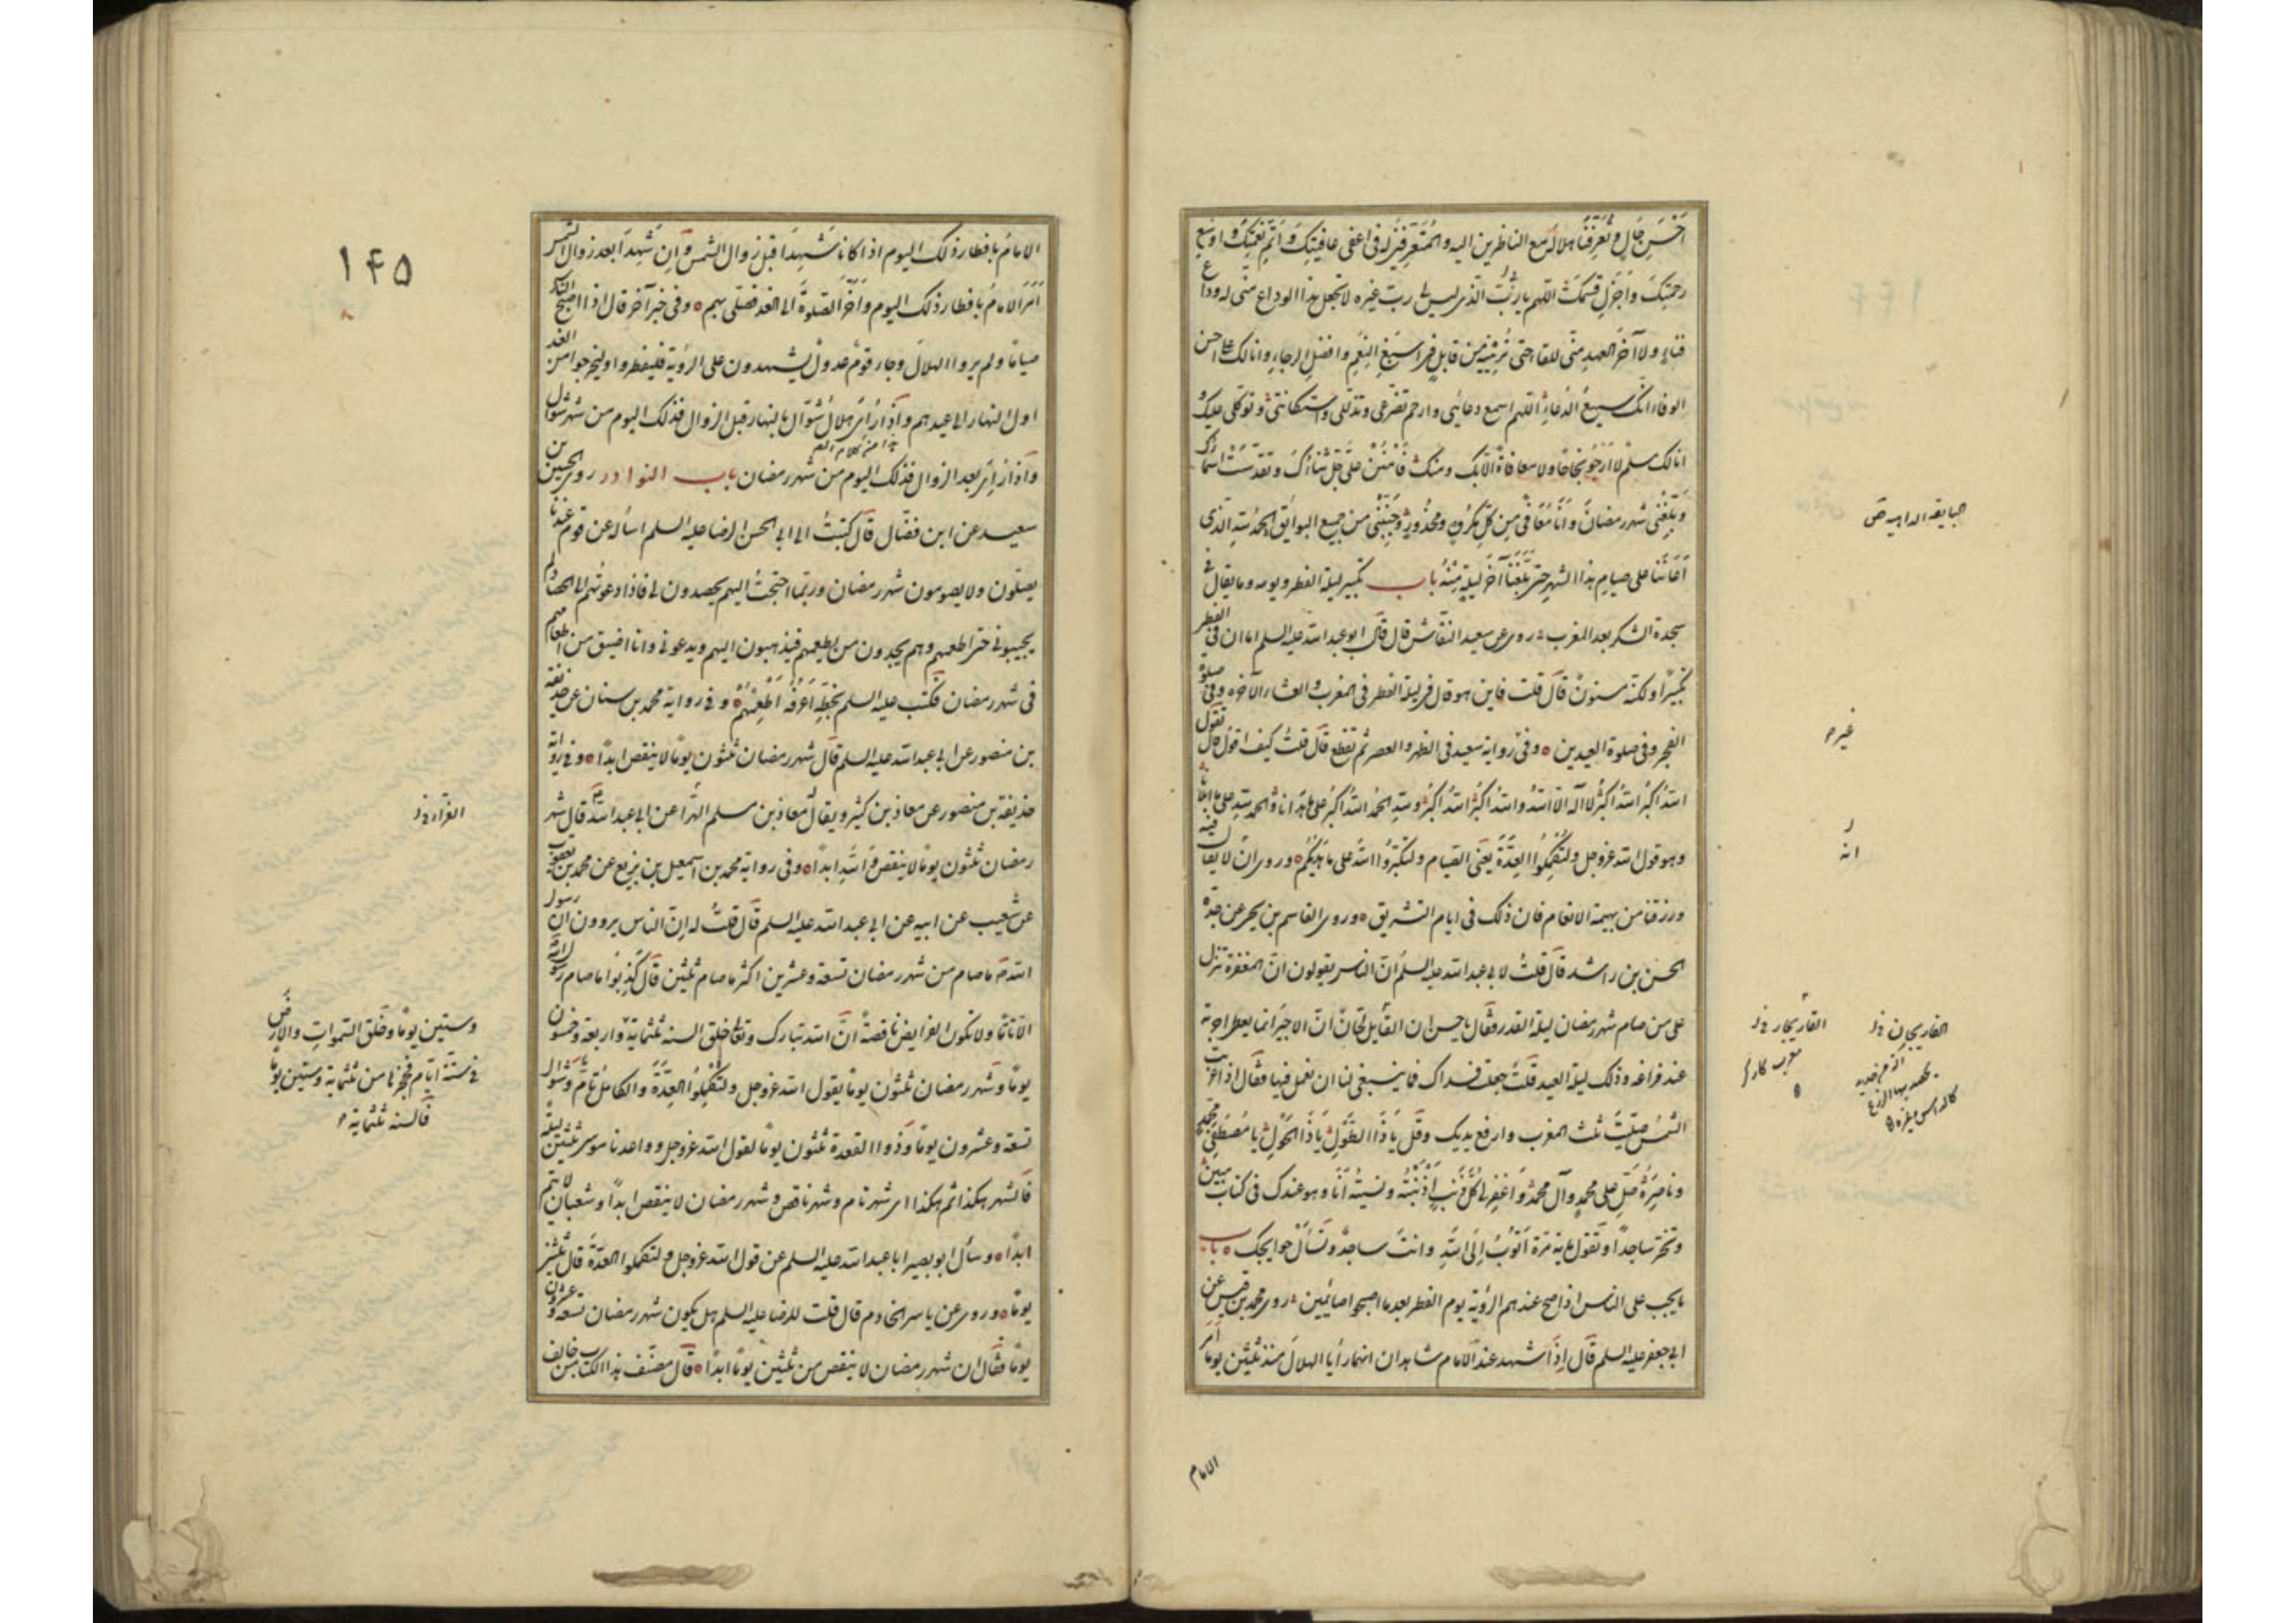 احسن حال وتعرفنا هلاله مع الناظرين اليه والمتعرفين له فى اعفى عافيتك واتم نعمتك واوسع
رحمتك واجزل قسمك اللهم يا رب الذى ليس لى رب غيره لا تجعل هذا الوداع منى له وداع
فناء ولا آخر العهد منى للقاء حتى ترينيه من قابل فى اسبغ النعم وافضل الرجاء وانا لك على احسن
الوفاء انك سميع الدعاء اللهم اسمع دعائى وارحم تضرعى وتذللى واستكانتى وتوكلى عليك و
انا لك سلم لا ارجو نجاحا ولا معافاة الا بك ومنك فامنن على جل ثناؤك وتقدست اسماؤك
وبلغنى شهر رمضان وانا معافى من كل مكروه ومحذور وجنبنى من جميع البوائق الحمد لله الذى
اعاننا على صيام هذا الشهر حتى بلغنا آخر ليلة منه باب تكبير ليلة الفطر ويومه وما يقال فى
سجدة الشكر بعد المغرب روى عن سعيد النقاش قال قال ابو عبد الله عليه السلم اما ان فى الفطر
تكبيرا ولكنه مسنون قال قلت فاين هو قال فى ليلة الفطر فى المغرب والعشاء الآخرة وفى صلوة
الفجر وفى صلوة العيدين وفى رواية سعيد فى الظهر والعصر ثم تقطع قال قلت كيف اقول قال تقول
الله اكبر الله اكبر لا اله الا الله والله اكبر الله اكبر ولله الحمد الله اكبر على ما هدانا والحمد لله على ما ابلانا
وهو قول الله عز وجل ولتكملوا العدة يعنى الصيام ولتكبروا الله على ما هديكم وروى ان لا يقال فيه
ورزقنا من بهيمة الانعام فان ذلك فى ايام التشريق وروى القاسم بن يحيى عن جده
الحسن بن راشد قال قلت لابى عبد الله عليه السلم ان الناس يقولون ان المغفرة تنزل
على من صام شهر رمضان ليلة القدر فقال يا حسن ان القاريجان ان الاجير انما يعطى اجرته
عند فراغه وذلك ليلة العيد قلت جعلت فداك فما ينبغى لنا ان نعمل فيها فقال اذا غربت
الشمس صليت ثلث المغرب وارفع يديك وقل يا ذا الطول يا ذا الحول يا مصطفى محمد
وناصره صل على محمد وآل محمد واغفر لى كل ذنب اذنبته ونسيته انا وهو عندك فى كتاب مبين
وتخر ساجدا وتقول ماية مرة اتوب الى الله وانت ساجد وتسأل حوايجك باب
ما يجب على الناس اذا صح عندهم الرؤية يوم الفطر بعد ما اصبحوا صائمين روى محمد بن قيس عن
ابى جعفر عليه السلم قال اذا شهد عند الامام شاهدان انهما رأيا الهلال منذ ثلثين يوما امر
الامام
غيره
انه
القاريجار خ ل
الفاريجان خ ل
۱۴۵
الامام بافطار ذلك اليوم اذا كانا شهدا قبل زوال الشمس وان شهدا بعد زوال الشمس
امر الامام بافطار ذلك اليوم واخر الصلوة الى الغد فصلى بهم وفى خبر آخر قال اذا اصبح الناس
صياما ولم يروا الهلال وجاء قوم عدول يشهدون على الرؤية فليفطروا وليخرجوا من الغد
اول النهار الى عيدهم واذا رأى هلال شوال بالنهار قبل الزوال فذلك اليوم من شهر شوال
واذا رأى بعد الزوال فذلك اليوم من شهر رمضان باب النوادر روى الحسين بن
سعيد عن ابن فضال قال كتبت الى ابى الحسن الرضا عليه السلم اسأله عن قوم عندنا
يصلون ولا يصومون شهر رمضان وربما احتجت اليهم يحصدون لى فاذا دعوتهم الى الحصاد لم
يجيبونى حتى اطعمهم وهم يجدون من يطعمهم فيذهبون اليهم ويدعونى وانا اضيق من اطعامهم
فى شهر رمضان فكتب عليه السلم بخطه اعرفه اطعمهم وفى رواية محمد بن سنان عن حذيفة
بن منصور عن ابى عبد الله عليه السلم قال شهر رمضان ثلثون يوما لا ينقص ابدا وفى رواية
حذيفة بن منصور عن معاذ بن كثير ويقال معاذ بن مسلم الهرا عن ابى عبد الله ع قال شهر
رمضان ثلثون يوما لا ينقص والله ابدا وفى رواية محمد بن اسمعيل بن بزيع عن محمد بن يعقوب
عن شعيب عن ابيه عن ابى عبد الله عليه السلم قال قلت له ان الناس يروون ان رسول
الله ص ما صام من شهر رمضان تسعة وعشرين اكثر ما صام ثلثين قال كذبوا ما صام رسول الله
الا تاما ولا تكون الفرايض ناقصة ان الله تبارك وتعالى خلق السنة ثلثماية واربعة وخمسون
يوما وشهر رمضان ثلثون يوما يقول الله عز وجل ولتكملوا العدة والكامل تام وشوال
تسعة وعشرون يوما وذوا القعدة ثلثون يوما لقول الله عز وجل وواعدنا موسى ثلثين ليلة
فالشهر هكذا ثم هكذا اى شهر تام وشهر ناقص وشهر رمضان لا ينقص ابدا وشعبان لا يتم
ابدا وسأل ابو بصير ابا عبد الله عليه السلم عن قول الله عز وجل ولتكملوا العدة قال ثلثين
يوما وروى عن ياسر الخادم قال قلت للرضا عليه السلم هل يكون شهر رمضان تسعة وعشرون
يوما فقال ان شهر رمضان لا ينقص من ثلثين يوما ابدا قال مصنف هذا الكتاب من خالف
الفراء خ ل
وستين يوما وخلق السموات والارض
فى ستة ايام فحجزها من ثلثماية وستين يوما
فالسنة ثلثماية